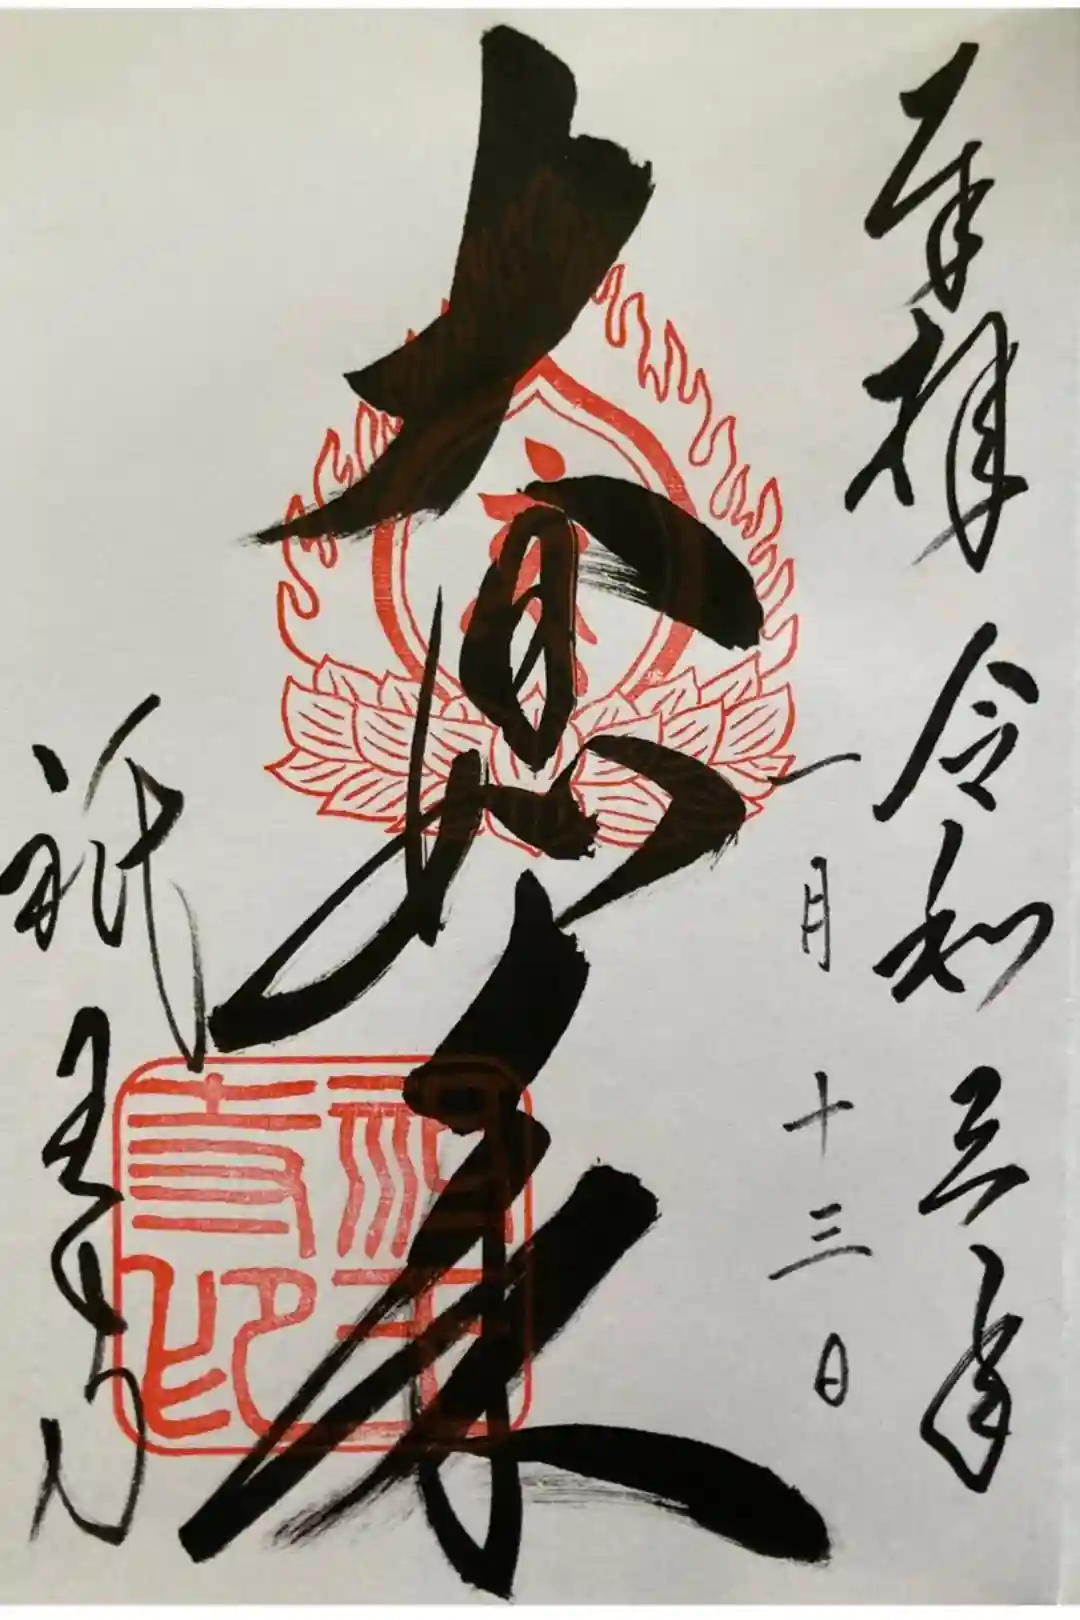 奉拝 令和三年
一月十三日
大日如来
祇王寺
祇王
寺印